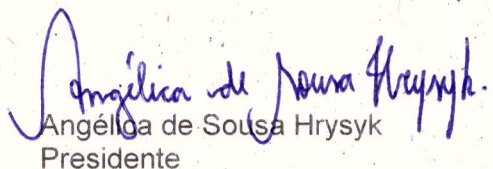 Angélica de Sousa Hrysyk.
Angélica de Sousa Hrysyk
Presidente